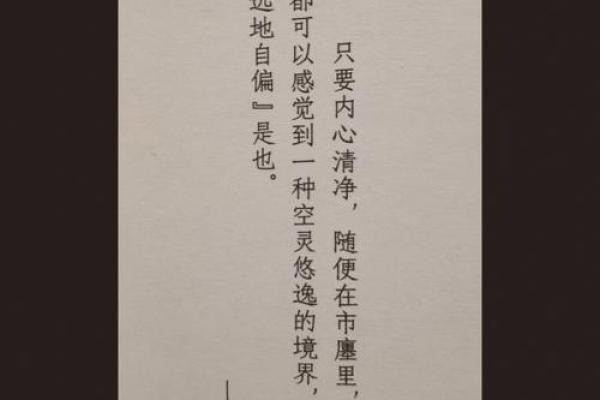 只要内心清净，随便在市廛里，
都可以感觉到一种空灵悠逸的境界，
远地自偏』是也。